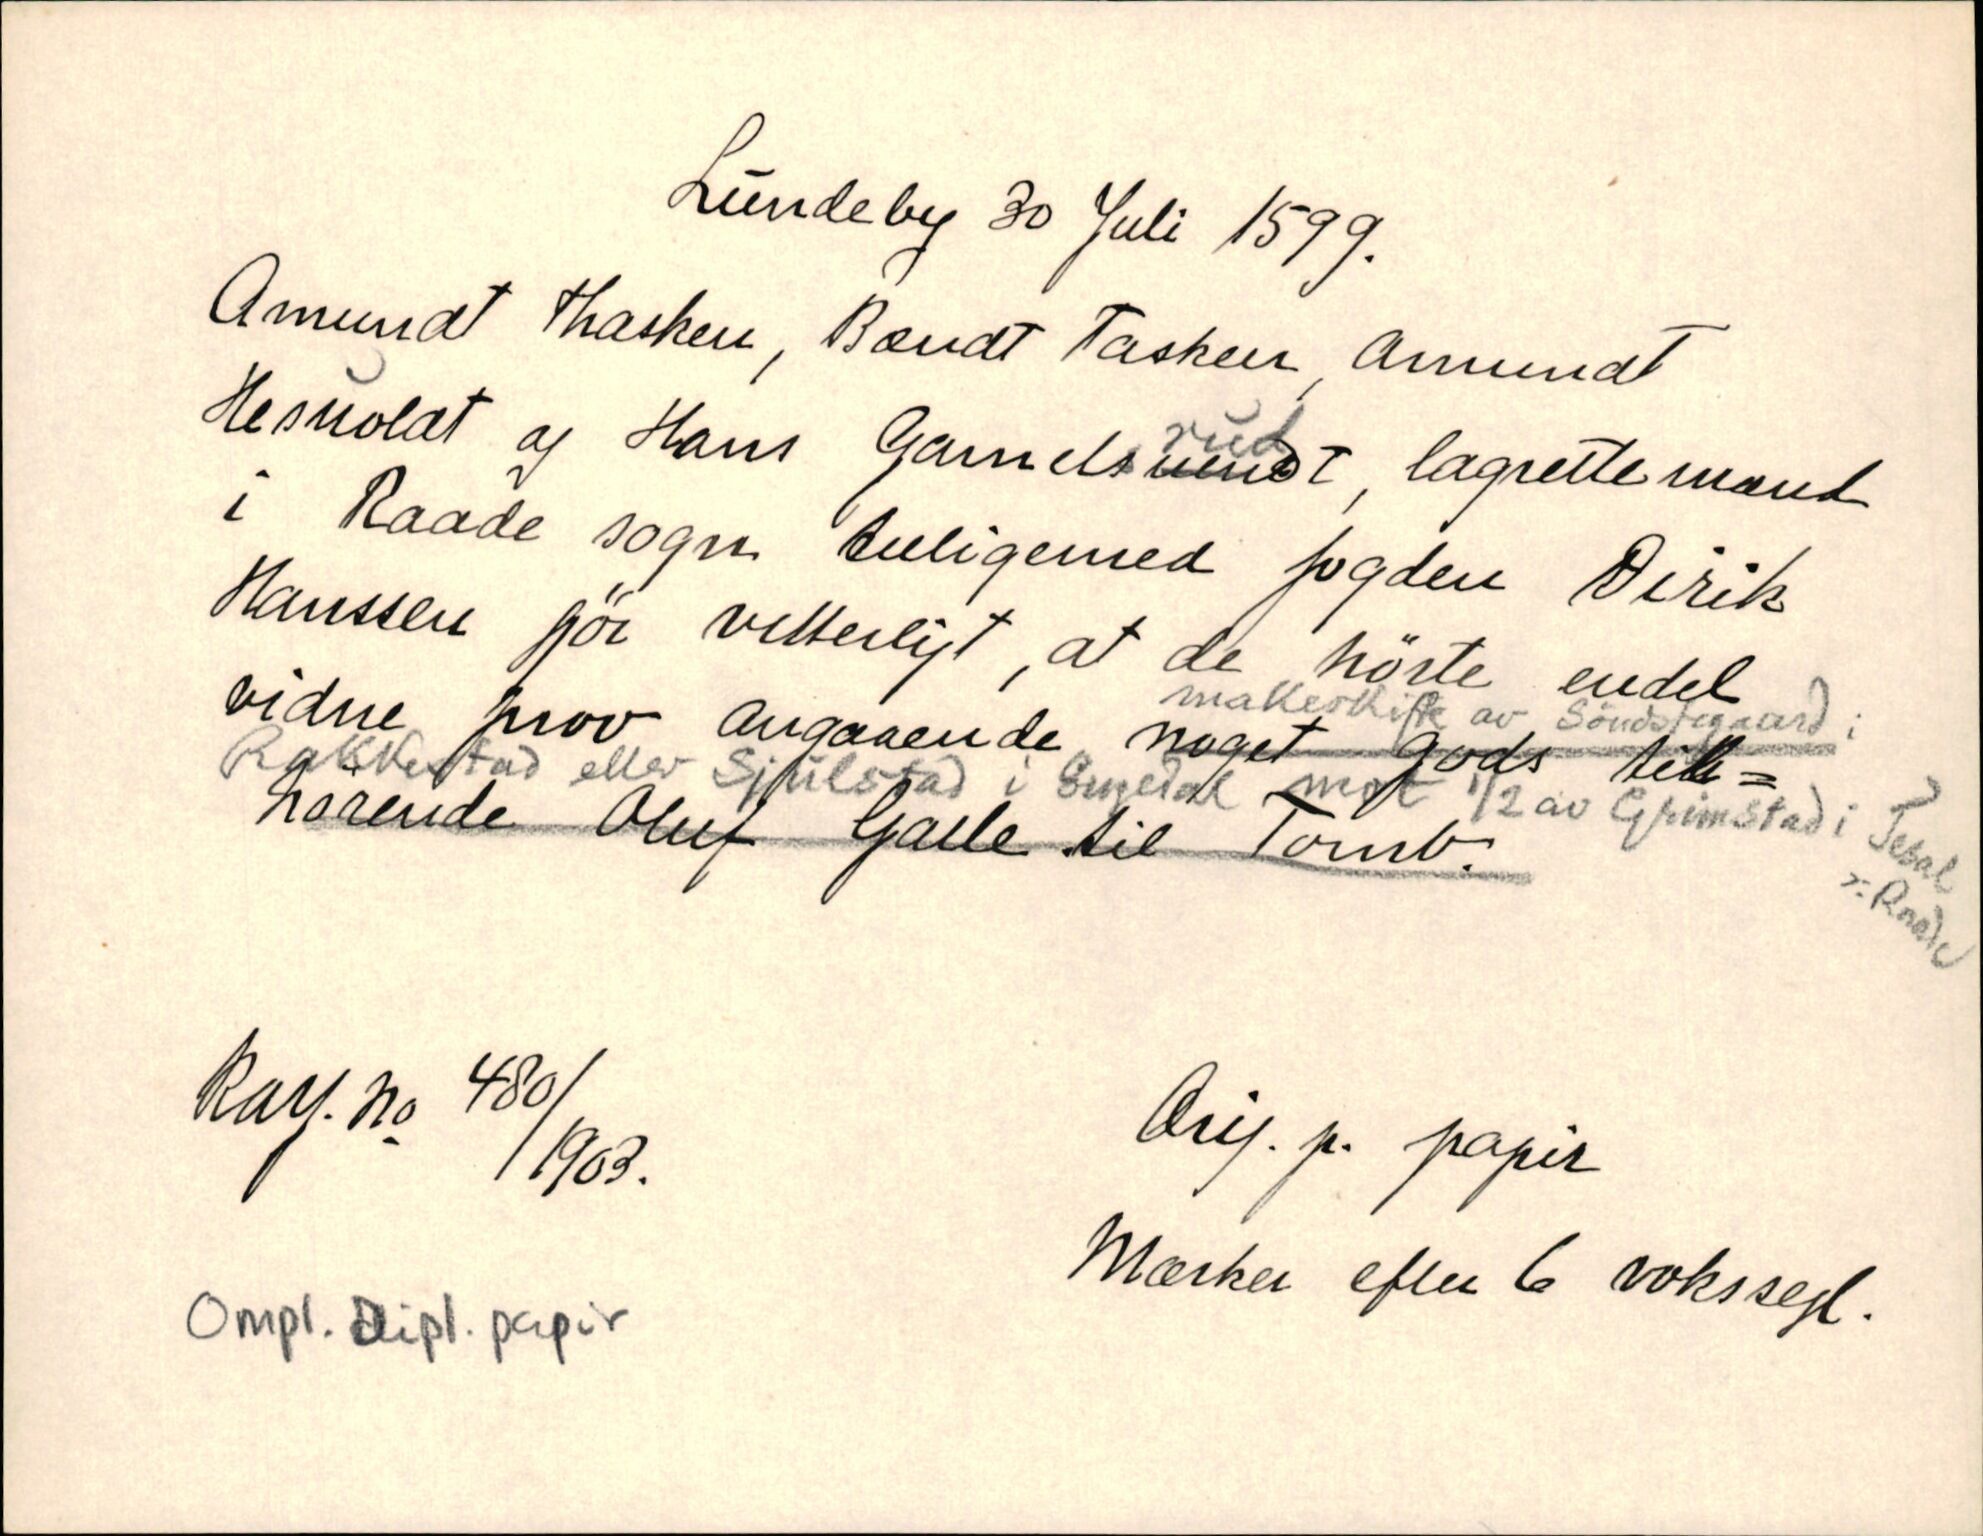 Lundeby 30 Juli 1599.
Amundt Thasken, Bændt Tasken, Amundt
Hesuoldt og Hans Garnelsuendt, lagrettemænd
rud
i Raade sogn tilligemed fogden Dirik
Hanssen gör vitterligt, at de hörte endel
vidne prov angaaende noget gods til=
makeskifte av Söndstegaard i
Rakkestad eller Sjulstad i mot 1/2 av Grimstad i
r. Raade
hörende Oluf Galle til Tomb.
No 480/1903.
Orig. p. papir
Mærker efter 6 vokssegl.
Ompl. Dipl. papir